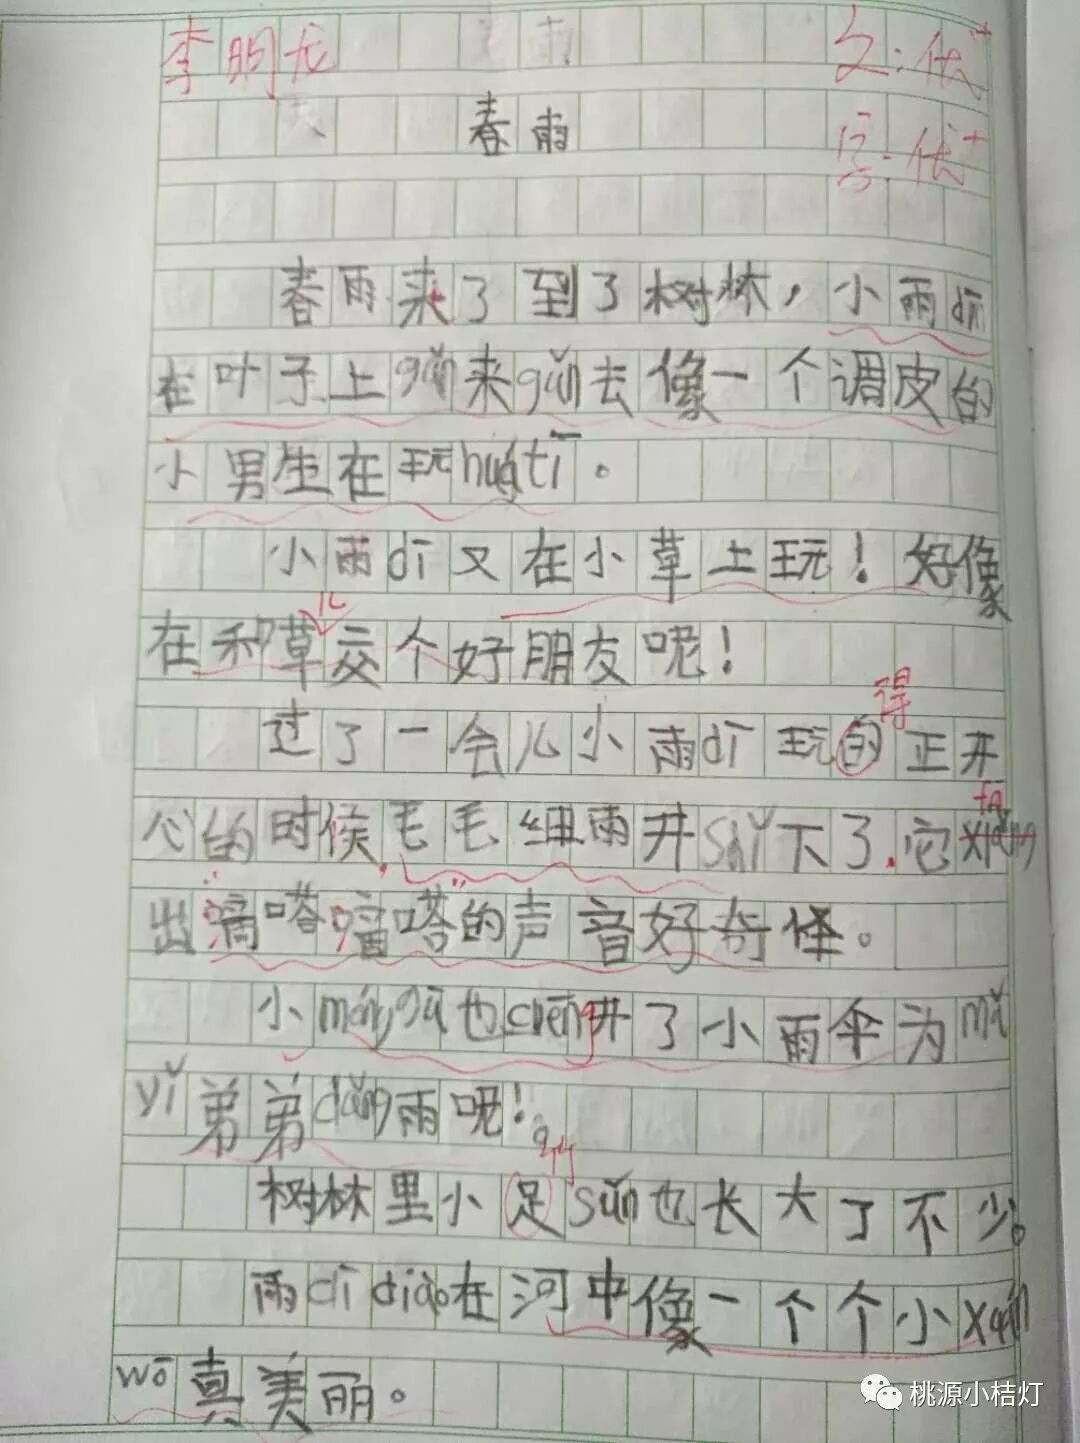 李明龙 文:优+
春雨 字:优+
春雨来了到了树林，小雨dī
在叶子上gǔn来gǔn去像一个调皮的
小男生在玩huátī。
小雨dī又在小草上玩！好像
在和草儿交个好朋友呢！
过了一会儿小雨dī玩的得正开
心的时候，毛毛细雨开shǐ下了，它fā
出滴嗒嘀嗒的声音好奇怪。
小mónggū也chēng开了小雨伞为mǎ
yǐ弟弟dǎng雨呢！
树林里小足sǔn也长大了不少。
雨dī diào在河中像一个个小xuán
wō真美丽。
桃源小桔灯